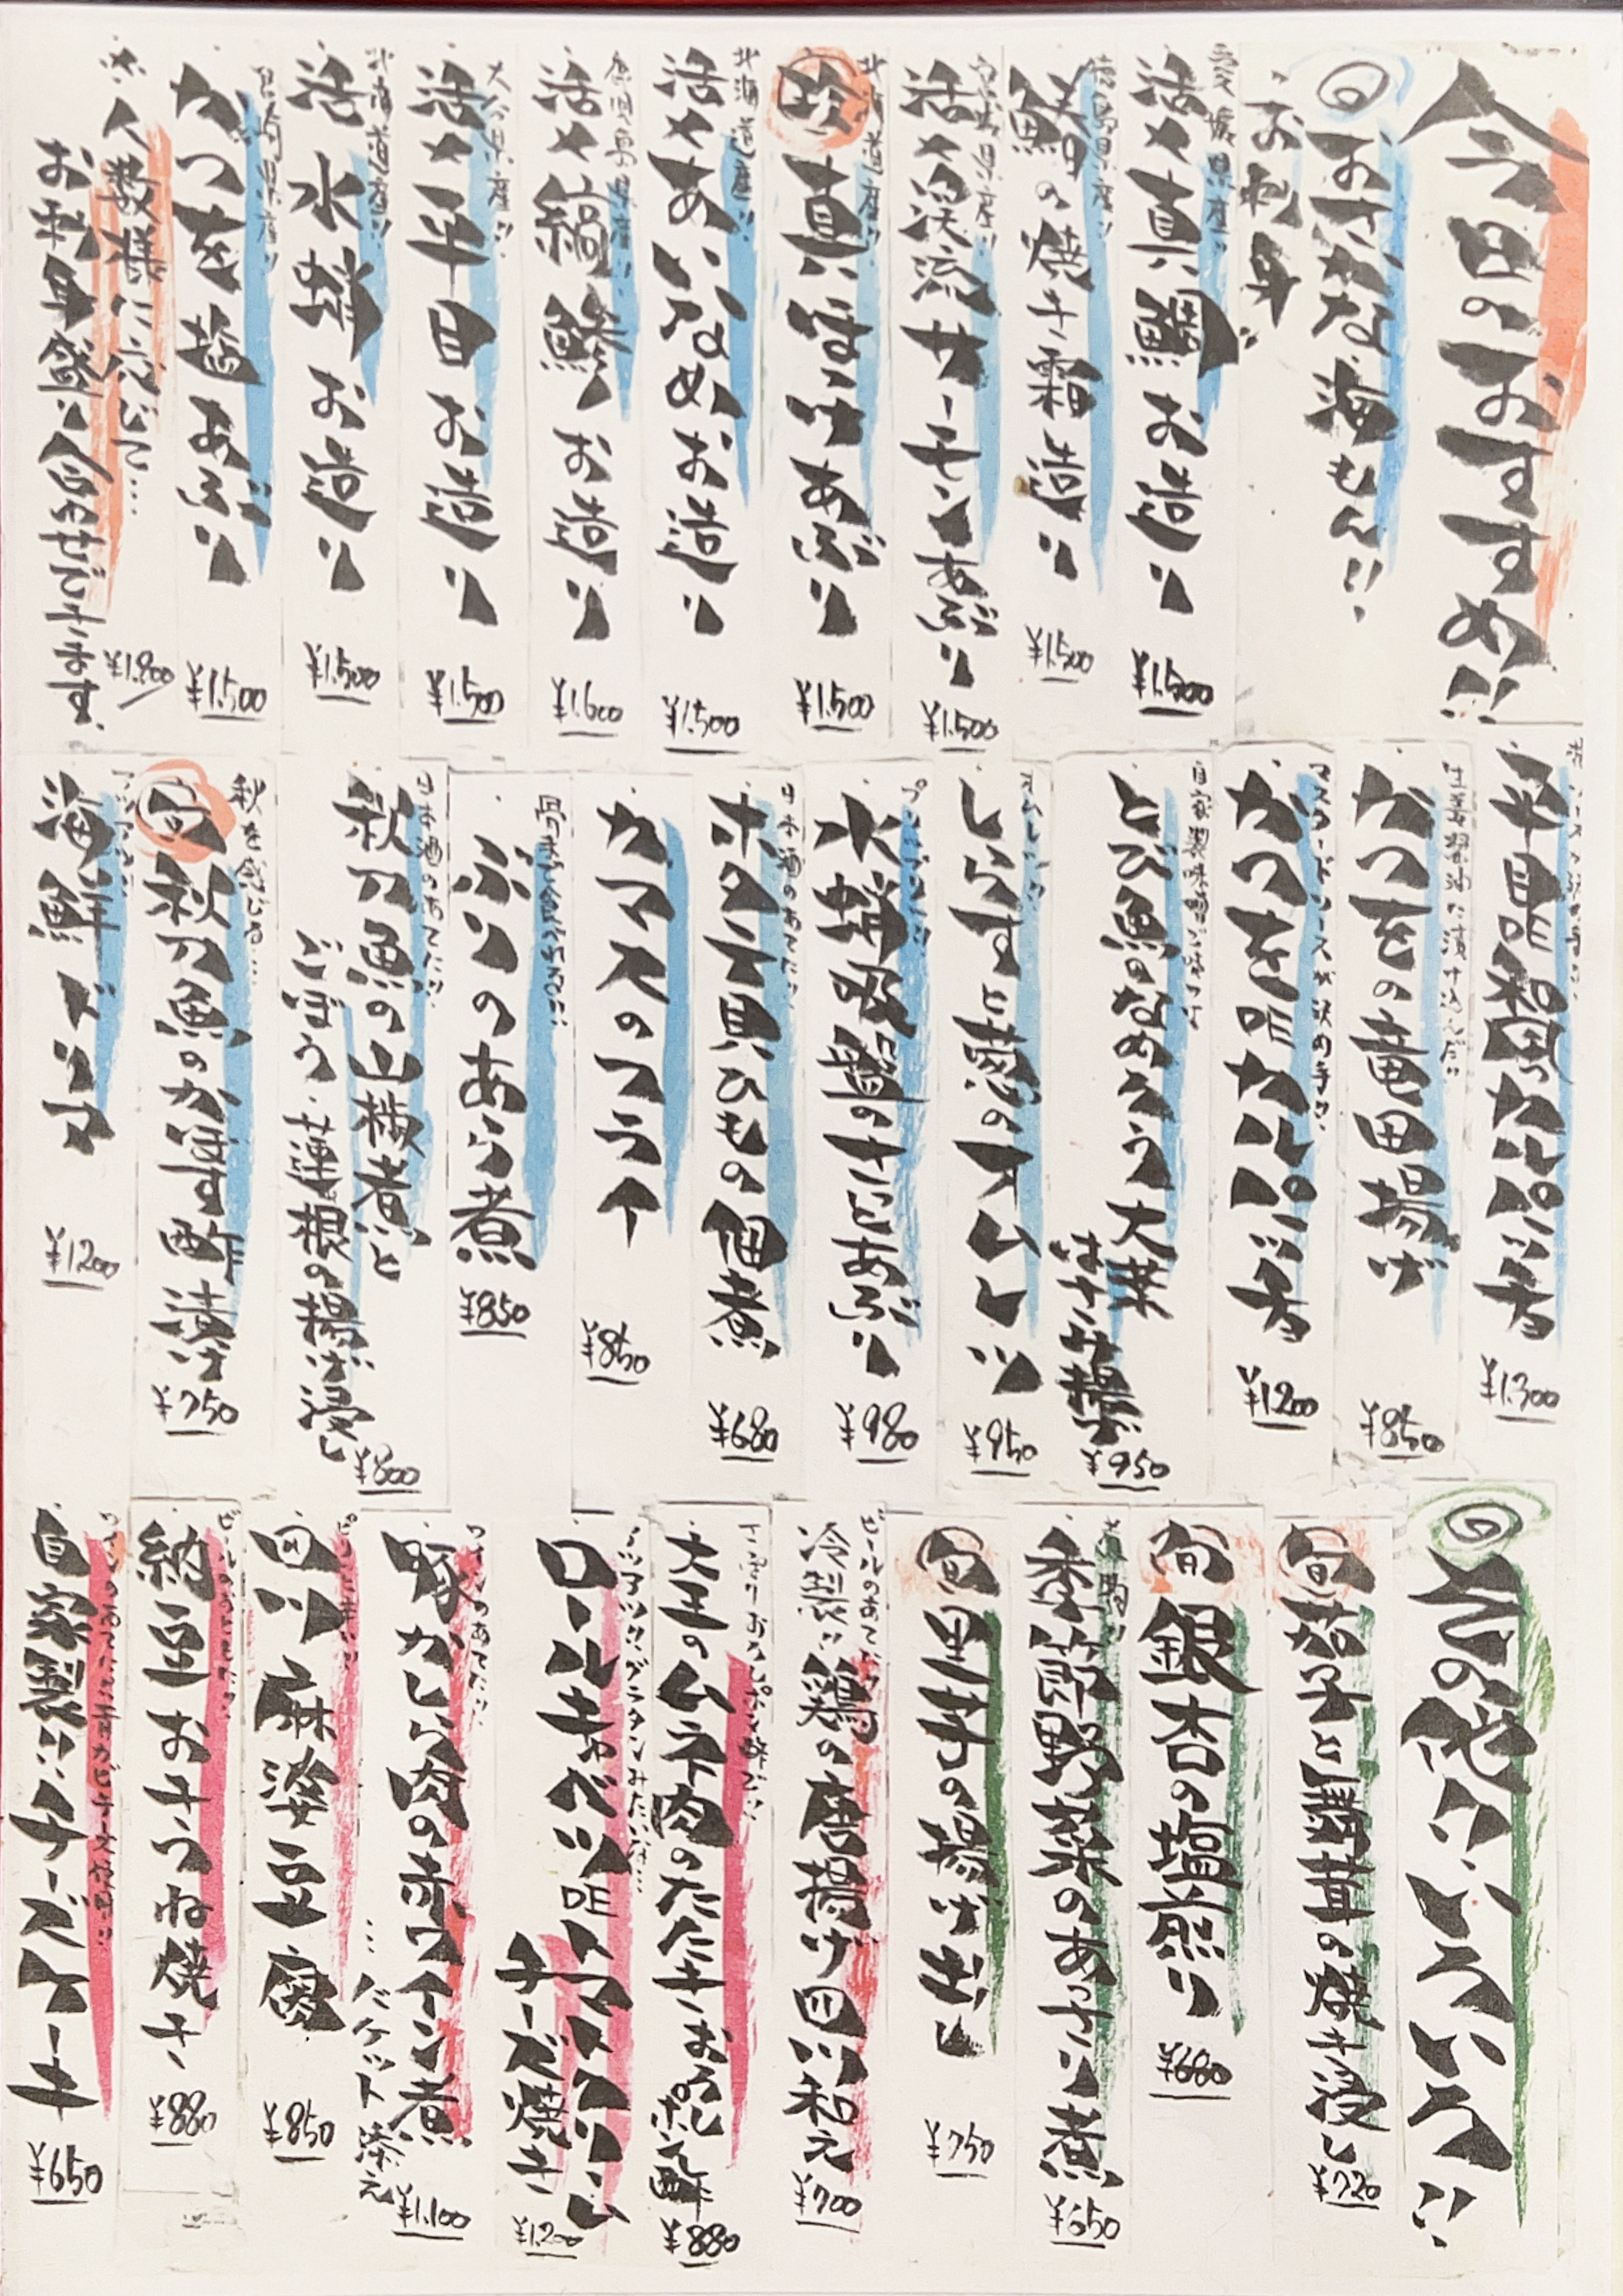 今日のおすすめ!!
◎おさかな・海もん!!
・お刺身
愛媛県産!!
活〆真鯛お造り
¥1,500
徳島県産!!
鰆の焼き霜造り
¥1,500
活〆渓流サーモンあぶり
¥1,500
北海道産!!
真ほっけあぶり
¥1,500
北海道産!!
活〆あいなめお造り
¥1,500
鹿児島県産!!
活〆縞鯵お造り
¥1,600
大分県産!!
活〆平目お造り
¥1,500
北海道産!!
活水蛸お造り
¥1,500
かつを藁あぶり
¥1,500
※人数様に応じて…
お刺身盛り合わせできます。
¥1,800
平目昆布〆カルパッチョ
¥1,300
生姜醤油に漬け込んだ!!
かつをの竜田揚げ
¥850
マスタードソースが決め手!!
かつをと カルパッチョ
¥1,200
自家製味噌で味つけ
とび魚なめろう大葉
はさみ揚げ
¥950
しらすと葱のオムレツ
¥950
プリップリ!!
水蛸吸盤のさっとあぶり
¥980
日本酒のあてに!!
ホタテ貝ひもの佃煮
¥680
カマスのフライ
¥850
ぶりのあら煮
¥850
日本酒のあてに!!
秋刀魚の山椒煮と
ごぼう、蓮根の揚げ浸し
¥800
秋を感じる…
旬 秋刀魚のかぼす酢漬け
¥750
海鮮ドック
¥1,200
◎その他いろいろ!!
旬 茄子と賀茂茄子の焼き浸し
¥720
旬 銀杏の塩煎り
¥680
香節野菜のあっさり煮
¥650
旬 里芋の揚げ出し
¥750
ビールのあてに!!
冷製!!鶏の唐揚げ四川和え
¥700
大玉のムネ肉のたたきおろしポン酢
¥880
ロールキャベツと トマトクリーム
チーズ焼き
¥1,200
ワインのあてに!!
豚カシラ肉の赤ワイン煮
…バケット添え
¥1,100
四川麻婆豆腐
¥850
ビールのあてに!!
納豆おきつね焼き
¥880
ワインのあてに!!青カビチーズ使用!!
自家製!!チーズケーキ
¥650